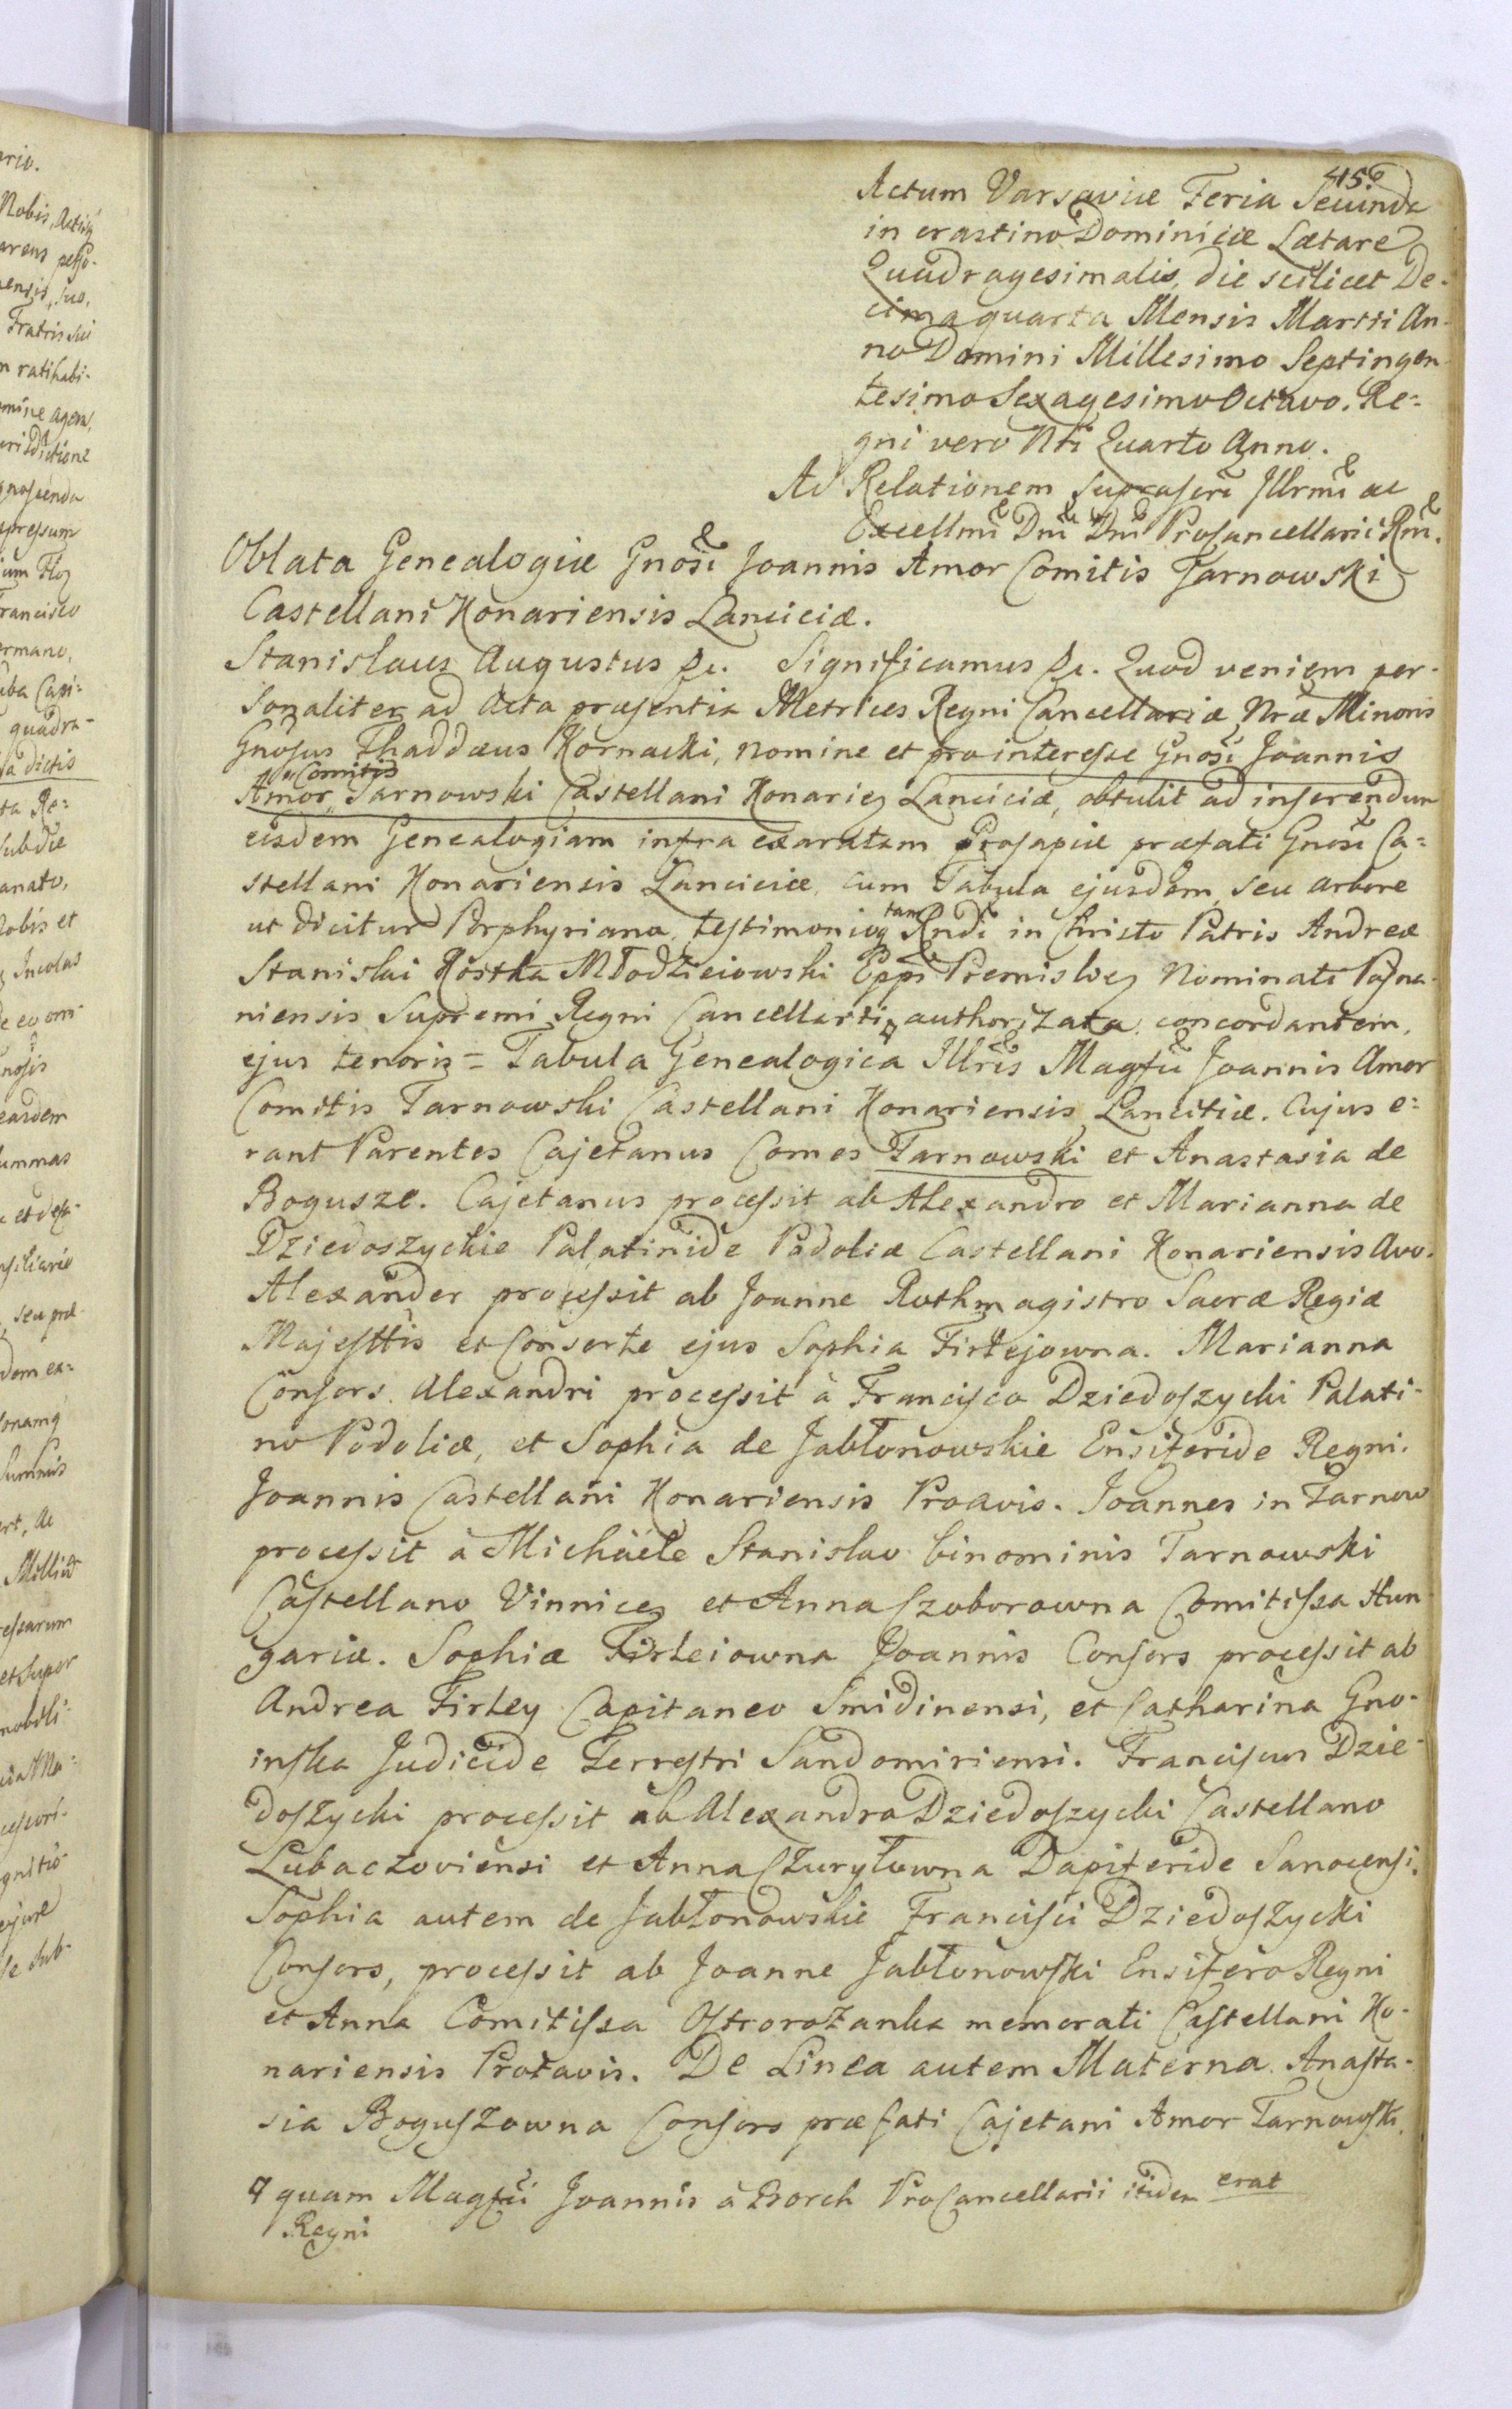 415
Actum Varsaviæ Feria Secunda
in crastino Dominicæ Lætare
Quadragesimalis, die scilicet De-
cima quarta Mensis Martii An-
no Domini Millesimo Septingen-
tesimo Sexagesimo Octavo. Re=
gni vero Nri Quarto Anno.
Ad Relationem suprascri Illrmi ac
Excellmi Dni Dni Procancellarii Rni.
Oblata Genealogiæ Gnosi Joannis Amor Comitis Tarnowski
Castellani Konariensis Lanciciæ.
Stanislaus Augustus &c. Significamus &c. Quod veniens per-
sonaliter ad Acta præsentia Metrices Regni Cancellariæ Nræ Minoris
Gnosus Thaddæus Kornacki, nomine et pro interesse Gnosi Joannis
Amor Comitis Tarnowski Castellani Konarien Lanciciæ, obtulit ad inserendum
eisdem Genealogiam infra exaratam Prosapiæ præfati Gnosi Ca=
stellani Konariensis Lanciciæ, cum Tabula ejusdem, seu arbore
ut dicitur Porphyriana, testimonioq tam Rndi in Christo Patris Andreæ
Stanislai Kostka Młodzieiowski Eppi Premislien Nominati Posna-
niensis Supremi Regni Cancellarii authorizata, concordantem,
ejus tenoris = Tabula Genealogica Illris Magfci Joannis Amor
Comitis Tarnowski Castellani Konariensis Lancitiæ. Cujus e=
rant Parentes Cajetanus Comes Tarnowski et Anastasia de
Bogusze. Cajetanus processit ab Alexandro et Marianna de
Dziedoszyckie Palatinide Podoliæ Castellani Konariensis Avo.
Alexander processit ab Joanne Rothmagistro Sacræ Regiæ
Majesttis et Consorte ejus Sophia Firlejowna. Marianna
Consors Alexandri processit à Francisco Dziedoszycki Palati-
no Podoliæ, et Sophia de Jabłonowskie Ensiferide Regni.
Joannis Castellani Konariensis Proavis. Joannes in Tarnow
processit à Michäele Stanislao binominis Tarnowski
Castellano Vinnicen et Anna Szoborowna Comitissa Hun
gariæ. Sophia Firleiowna Joannis Consors processit ab
Andrea Firley Capitaneo Smidinensi, et Catharina Gno-
inska Judicide Terrestri Sandomiriensi. Franciscus Dzie-
doszycki processit ab Alexandro Dziedoszycki Castellano
Lubaczoviensi et Anna Czuryłowna Dapiferide Sanocensi.
Sophia autem de Jabłonowskie Francisci Dziedoszycki
Consors, processit ab Joanne Jabłonowski Ensifero Regni
et Anna Comitissa Ostrorożanka memorati Castellani Ko-
nariensis Protavis. De Linea autem Materna. Anasta-
sia Boguszowna Consors præfati Cajetani Amor Tarnowski,
quam Magfci Joannis à Borch ProCancellarii itidem erat
Regni